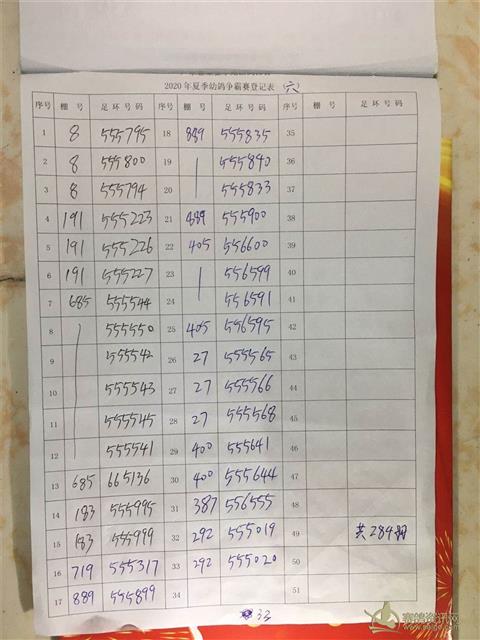 2020年夏季幼鸽争霸赛登记表 (六)
序号 棚 号 足 环 号 码 序号 棚 号 足 环 号 码 序号 棚 号 足 环 号 码
1 8 555795 18 889 555835 35
2 8 555800 19 555840 36
3 8 555794 20 555833 37
4 191 555223 21 889 555900 38
5 191 555226 22 405 556600 39
6 191 555227 23 556599 40
7 685 555544 24 556591 41
8 555550 25 405 556595 42
9 555542 26 27 555565 43
10 555543 27 27 555566 44
11 555545 28 27 555568 45
12 555541 29 400 555641 46
13 685 665136 30 400 555644 47
14 183 555995 31 387 556555 48
15 183 555999 32 292 555019 49 共284羽
16 719 555317 33 292 555020 50
17 889 555899 34 51
33
赛鸽资讯网